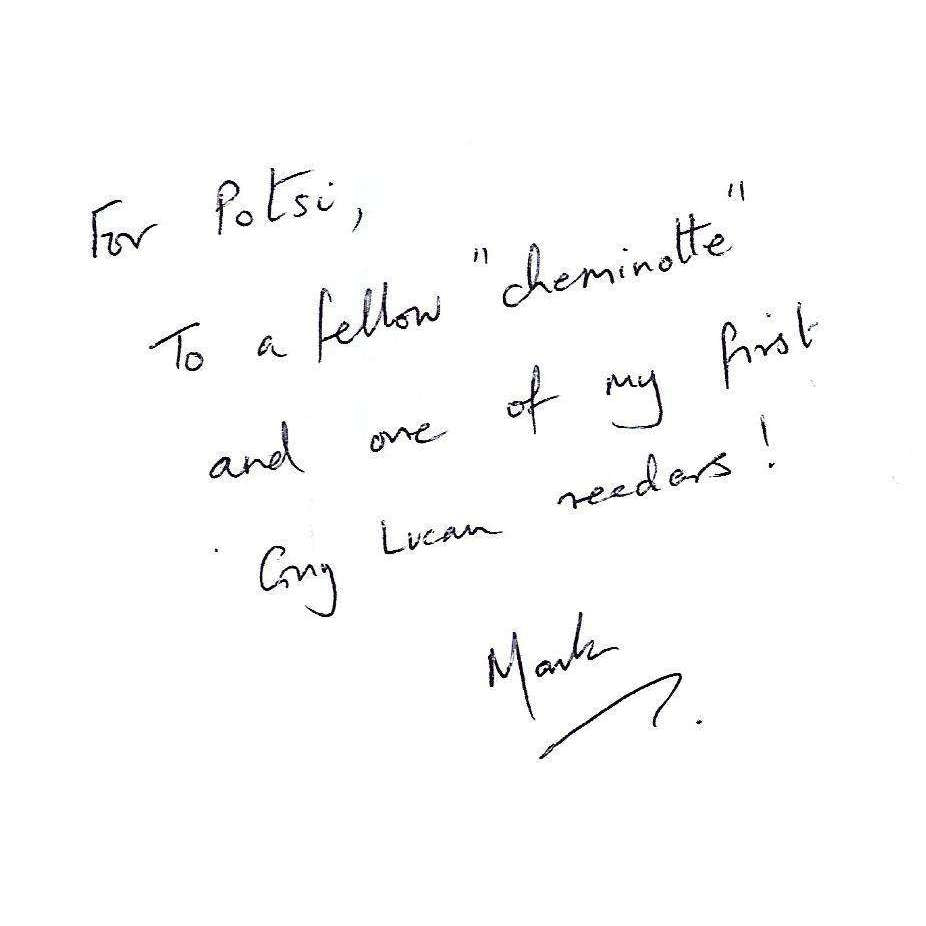 For Potsi,
To a fellow "cheminotte"
and one of my first
Lucan readers!
Mark